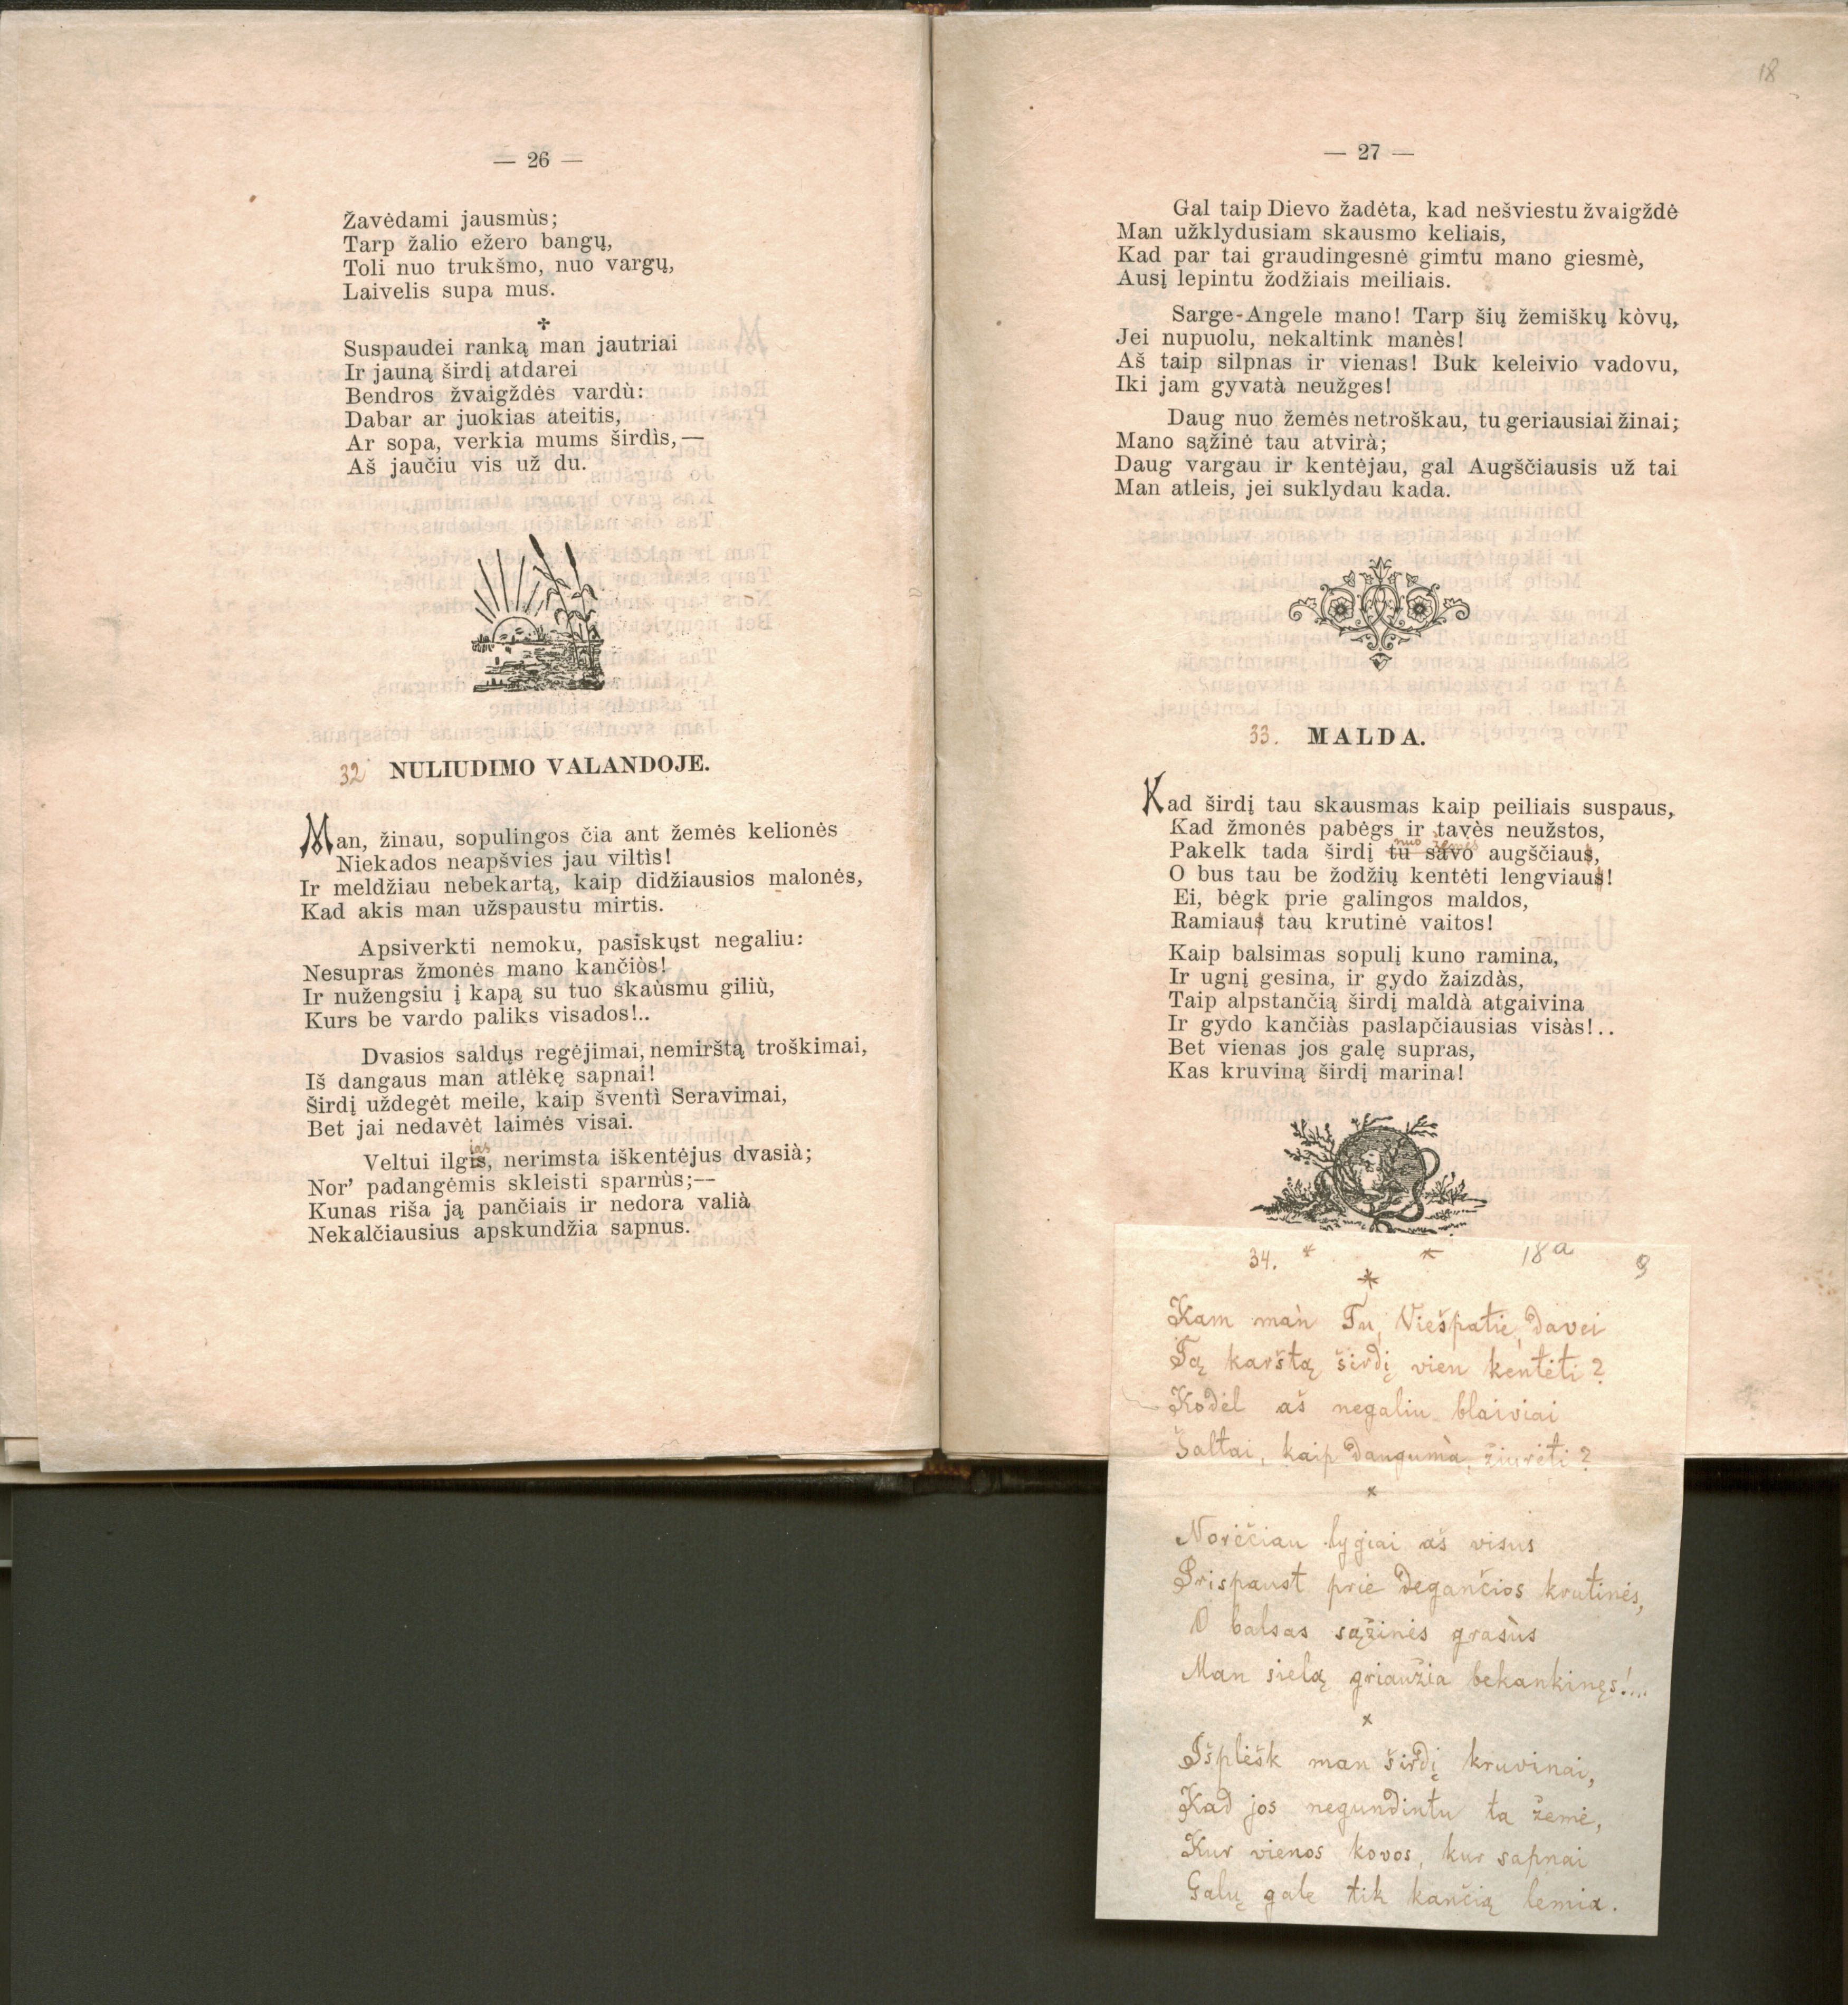 — 26 —
Žavėdami jausmùs;
Tarp žalio ežero bangų,
Toli nuo trukšmo, nuo vargų,
Laivelis supa mus.
Suspaudei ranką man jautriai
Ir jauną širdį atdarei
Bendros žvaigždės vardù:
Dabar ar juokias ateitis,
Ar sopa, verkia mums širdìs,—
Aš jaučiu vis už du.
32 NULIUDIMO VALANDOJE.
Man, žinau, sopulingos čia ant žemės kelionės
Niekados neapšvies jau viltìs!
Ir meldžiau nebekartą, kaip didžiausios malonės,
Kad akis man užspaustu mirtis.
Apsiverkti nemoku, pasiskųst negaliu:
Nesupras žmonės mano kančiòs!
Ir nužengsiu į kapą su tuo skaùsmu giliù,
Kurs be vardo paliks visados!..
Dvasios saldųs regėjimai, nemirštą troškimai,
Iš dangaus man atlėkę sapnai!
Širdį uždegėt meile, kaip šventì Seravimai,
Bet jai nedavėt laimės visai.
ias
Veltui ilgis, nerimsta iškentėjus dvasià;
Nor’ padangėmis skleisti sparnùs;—
Kunas riša ją pančiais ir nedora valià
Nekalčiausius apskundžia sapnus.
18
— 27 —
Gal taip Dievo žadėta, kad nešviestu žvaigždė
Man užklydusiam skausmo keliais,
Kad par tai graudingesnė gimtu mano giesmė,
Ausį lepintu žodžiais meiliais.
Sarge-Angele mano! Tarp šių žemiškų kòvų,
Jei nupuolu, nekaltink manės!
Aš taip silpnas ir vienas! Buk keleivio vadovu,
Iki jam gyvatà neužges!
Daug nuo žemės netroškau, tu geriausiai žinai;
Mano sąžinė tau atvirà;
Daug vargau ir kentėjau, gal Augščiausis už tai
Man atleis, jei suklydau kada.
33. MALDA.
Kad širdį tau skausmas kaip peiliais suspaus,
Kad žmonės pabėgs ir tavės neužstos,
nuo žemės
Pakelk tada širdį tu savo augščiaus,
O bus tau be žodžių kentėti lengviaus!
Ei, bėgk prie galingos maldos,
Ramiaus tau krutinė vaitos!
Kaip balsimas sopulį kuno ramina,
Ir ugnį gesina, ir gydo žaizdàs,
Taip alpstančią širdį maldà atgaivina
Ir gydo kančiàs paslapčiausias visàs!..
Bet vienas jos galę supras,
Kas kruviną širdį marina!
34. * * 18a 9
*
Kam màn Tu, Viešpatie, davei
Tą karštą širdį vien kentėti?
Kodėl aš negaliu blaiviai
Šaltai, kaip dangumà, žiurėti?
x
Norėčiau lygiai aš visus
Prispaust prie degančios krutinės,
O balsas sąžinės grasùs
Man sielą griaužia bekankinęs!...
x
Išplėšk man širdį kruvinai,
Kad jos negundintu ta žemė,
Kur vienos kovos, kur sapnai
Galų gale tik kančią lemia.